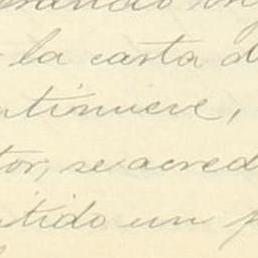 la carta d
ntinueve,
tor, se acred
tido un p